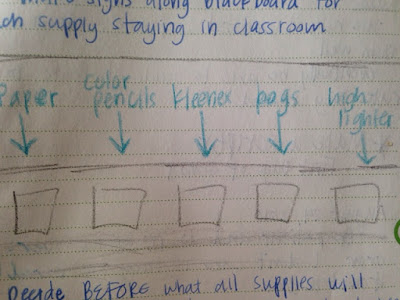 signs along blackboard for
supply staying in classroom
color high
Paper pencils Kleenex lighter
Decide BEFORE what all supplies will